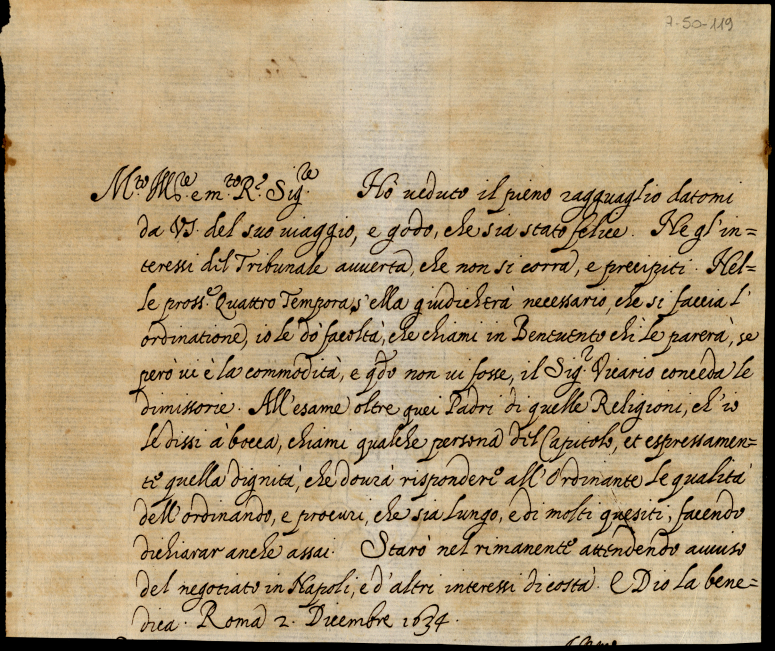 7-50-119
M.to Ill.re e m.to R.do Sig.re Hò veduto il pieno ragguaglio datomi
da VS. del suo viaggio, e godo, che sia stato felice. Negl'in=
teressi del Tribunale avverta, che non si corra, e precipiti. Nel=
le pross.e Quattro Tempora, s'ella giudicherà necessario, che si faccia l'
ordinatione, io le dò facoltà, che chiami in Benevento chi le parerà, se
però vi è la commodità, e q̃do non vi fosse, il Sig.r Vicario conceda le
dimissorie. All'esame oltre quei Padri di quelle Religioni, ch'io
le dissi à bocca, chiami qualche persona del Capitolo, et espressamen=
te quella dignità, che dovrà rispondere all'Ordinante le qualità
dell'ordinando, e procuri, che sia lungo, e di molti quesiti, facendo
dichiarar anche assai. Starò nel rimanente attendendo avviso
del negotiato in Napoli, e d'altri interessi di costà. E Dio la bene=
dica. Roma 2. Dicembre 1634.